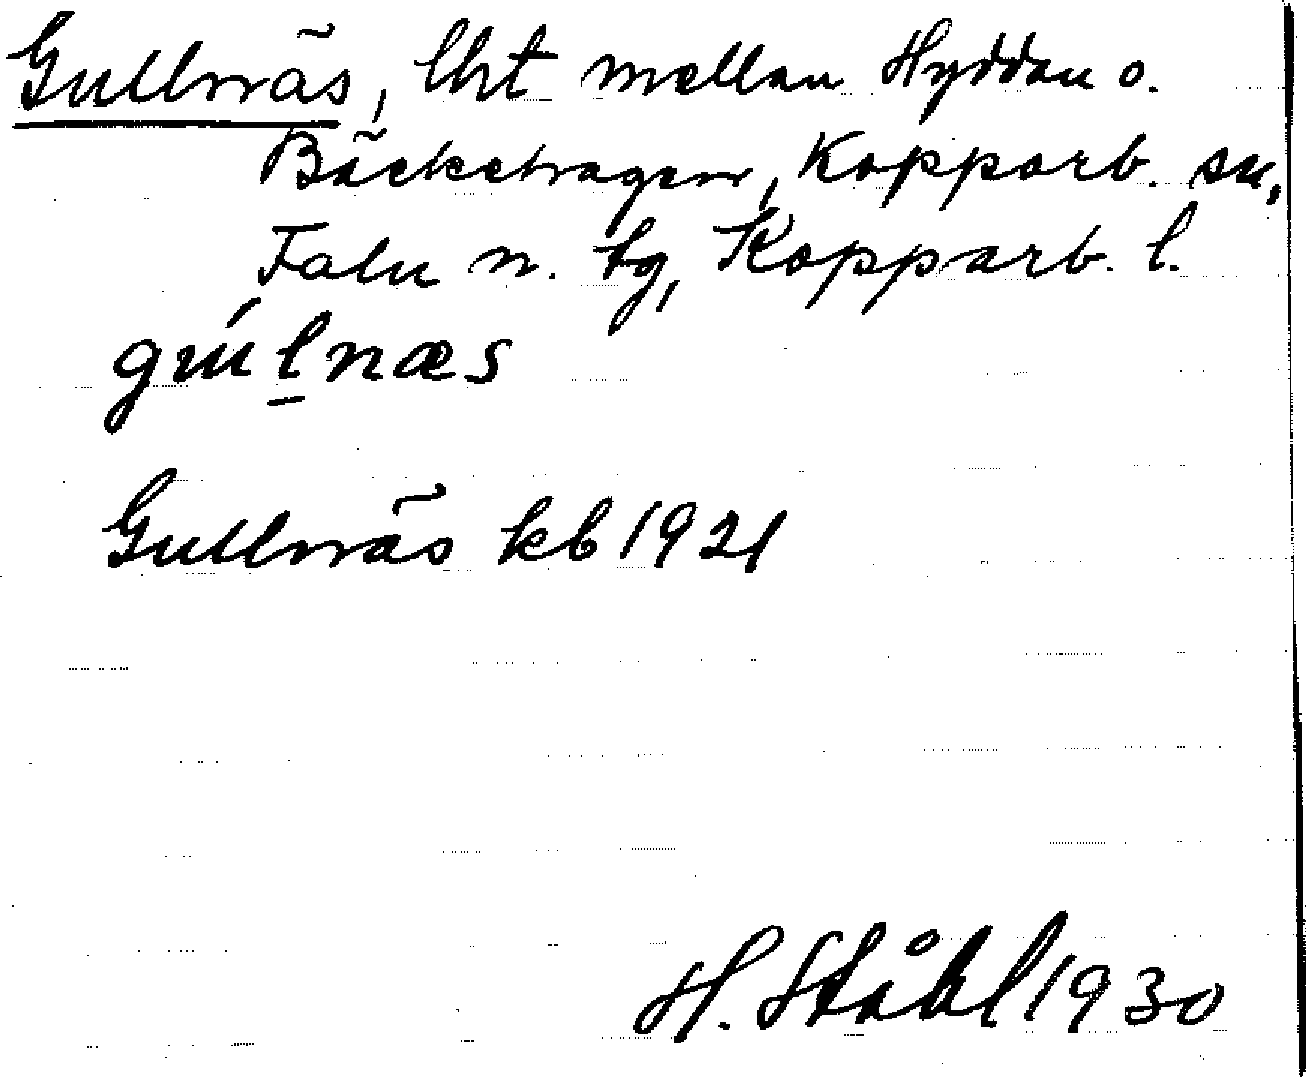 Gullnäs, lht mellan Hyddan o.
Bäckehagen, Kopparb. sn,
Falu n. tg, Kopparb. l.
gúl̲næs
Gullnäs kb 1921
H. Ståhl 1930